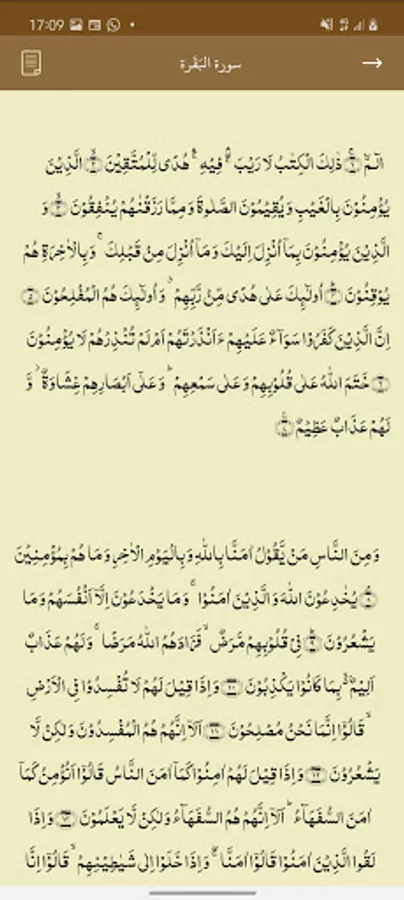 17:09
سورة البَقَرة
الٓمّٓ ۚ‏ ﴿۱﴾ ذٰلِكَ الۡكِتٰبُ لَا رَيۡبَ ۛۚ فِيۡهِ ۛۚ هُدًى لِّلۡمُتَّقِيۡنَۙ‏ ﴿۲﴾ الَّذِيۡنَ
يُؤۡمِنُوۡنَ بِالۡغَيۡبِ وَ يُقِيۡمُوۡنَ الصَّلٰوةَ وَمِمَّا رَزَقۡنٰهُمۡ يُنۡفِقُوۡنَۙ‏ ﴿۳﴾ وَ
الَّذِيۡنَ يُؤۡمِنُوۡنَ بِمَۤا اُنۡزِلَ اِلَيۡكَ وَمَاۤ اُنۡزِلَ مِنۡ قَبۡلِكَۚ وَبِالۡاٰخِرَةِ هُمۡ
يُوۡقِنُوۡنَؕ‏ ﴿۴﴾ اُولٰٓٮِٕكَ عَلٰى هُدًى مِّنۡ رَّبِّهِمۡ‌ۙ وَاُولٰٓٮِٕكَ هُمُ الۡمُفۡلِحُوۡنَ‏ ﴿۵﴾
اِنَّ الَّذِيۡنَ كَفَرُوۡا سَوَآءٌ عَلَيۡهِمۡ ءَاَنۡذَرۡتَهُمۡ اَمۡ لَمۡ تُنۡذِرۡهُمۡ لَا يُؤۡمِنُوۡنَ‏
﴿۶﴾ خَتَمَ اللّٰهُ عَلٰى قُلُوۡبِهِمۡ وَعَلٰى سَمۡعِهِمۡ‌ؕ وَعَلٰٓى اَبۡصَارِهِمۡ غِشَاوَةٌ وَّ
لَهُمۡ عَذَابٌ عَظِيۡمٌ‏ ﴿۷﴾
وَمِنَ النَّاسِ مَنۡ يَّقُوۡلُ اٰمَنَّا بِاللّٰهِ وَبِالۡيَوۡمِ الۡاٰخِرِ وَمَا هُمۡ بِمُؤۡمِنِيۡنَ‌ۘ‏
﴿۸﴾ يُخٰدِعُوۡنَ اللّٰهَ وَ الَّذِيۡنَ اٰمَنُوۡا ۚ وَمَا يَخۡدَعُوۡنَ اِلَّاۤ اَنۡفُسَهُمۡ وَمَا
يَشۡعُرُوۡنَؕ‏ ﴿۹﴾ فِىۡ قُلُوۡبِهِمۡ مَّرَضٌۙ فَزَادَهُمُ اللّٰهُ مَرَضًا ‌ۚ وَّلَهُمۡ عَذَابٌ
اَلِيۡمٌۙۢ بِمَا كَانُوۡا يَكۡذِبُوۡنَ‏ ﴿۱۰﴾ وَاِذَا قِيۡلَ لَهُمۡ لَا تُفۡسِدُوۡا فِىۡ الۡاَرۡضِۙ
قَالُوۡاۤ اِنَّمَا نَحۡنُ مُصۡلِحُوۡنَ‏ ﴿۱۱﴾ اَلَا ۤ اِنَّهُمۡ هُمُ الۡمُفۡسِدُوۡنَ وَلٰـكِنۡ لَّا
يَشۡعُرُوۡنَ‏ ﴿۱۲﴾ وَاِذَا قِيۡلَ لَهُمۡ اٰمِنُوۡا كَمَاۤ اٰمَنَ النَّاسُ قَالُوۡاۤ اَنُؤۡمِنُ كَمَاۤ
اٰمَنَ السُّفَهَآءُ‌ ؕ اَلَاۤ اِنَّهُمۡ هُمُ السُّفَهَآءُ وَلٰـكِنۡ لَّا يَعۡلَمُوۡنَ‏ ﴿۱۳﴾ وَاِذَا
لَقُوۡا الَّذِيۡنَ اٰمَنُوۡا قَالُوۡاۤ اٰمَنَّا ۖۚ وَاِذَا خَلَوۡا اِلٰى شَيٰطِيۡنِهِمۡۙ قَالُوۡاۤ اِنَّا